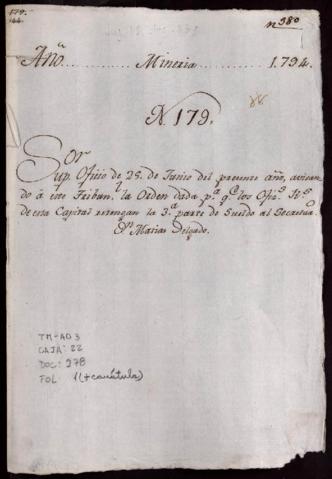 179.
nº 380
Año............ Mineria............ 1.794.
N. 179.
Sor
Sup. Oficio de 25. de Junio del presente año, avisan
do à este Tribun.l la Orden dada p.a q.e los Ofiz.s R.s
de esta Capital retengan la 3.a parte de Sueldo al Secreta.o
Dn Matias Delgado.
TM-AD3
CAJA: 22
DOC: 278
FOL: 1 (+carátula)